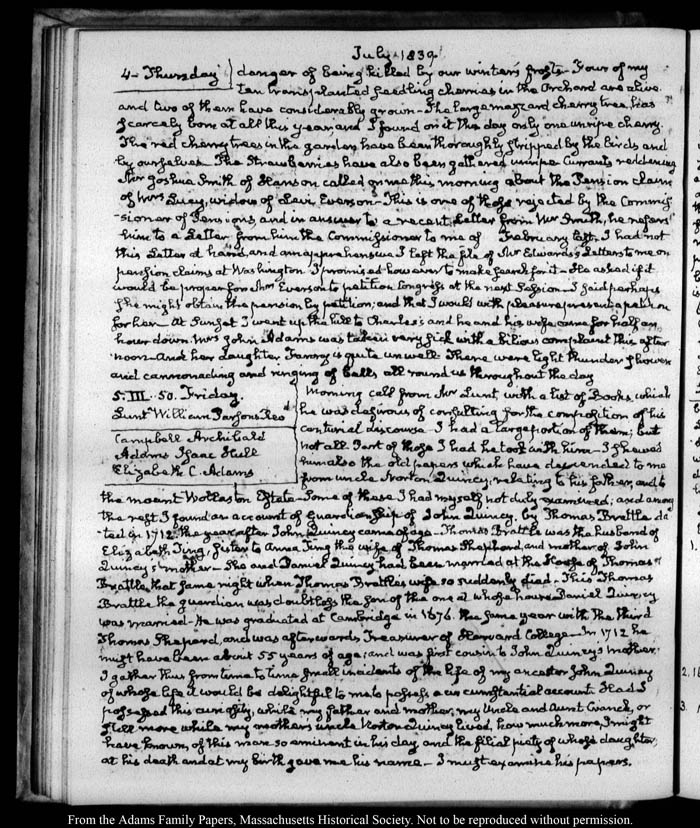 July 1839
4. Thursday danger of being killed by our winter frosts. Four of my
ten transplanted seedling cherries in the Orchard are alive
and two of them have considerably grown. The large mazzard cherry tree, has
scarcely born at all this year, and I found on it this day only one unripe cherry.
The red cherry trees in the garden have been thoroughly stripped by the birds and
by ourselves. The Strawberries have also been gathered unripe Currants reddening
Mr Joshua Smith of Hanson called on me this morning about the Pension claim
of Mrs Lucy, widow of Levi Everson. This is one of those rejected by the Commis-
-sioner of Pensions, and in answer to a recent Letter from Mr Smith, he refers
him to a Letter from him the Commissioner to me of February last. I had not
this Letter at hand, and am apprehensive I left the file of Mr Edwards's Letters to me on
pension claims at Washington. I promised however to make search for it. He asked if it
would be proper for Mrs Everson to petition Congress at the next Session. I said perhaps
she might obtain the pension by petition; and that I would with pleasure present a petition
for her. At Sunset I went up the hill to Charles's; and he and his wife came for half an
hour down. Mrs John Adams was taken very sick with a bilious complaint this after
noon. And her daughter Fanny is quite unwell. There were light thunder showers
and cannonading and ringing of bells all round us throughout the day
5. III. 50. Friday. Morning call from Mr Lunt, with a list of Books which
Lunt William Parsons Revd he was desirous of consulting for the composition of his
Campbell Archibald centurial discourse. I had a large portion of them; but
Adams Isaac Hull not all. Part of those I had he took with him. I shewed
Elizabeth C. Adams him also the old papers which have descended to me
from uncle Norton Quincy, relating to his father, and to
the mount Wollaston Estate. Some of these I had myself not duly examined; and among
the rest I found an account of Guardianship of John Quincy, by Thomas Brattle da-
ted in 1712. the year after John Quincy came of age. Thomas Brattle was the husband of
Elizabeth Ting, Sister to Anna Ting the wife of Thomas Shephard, and mother of John
Quincy's mother. She and Daniel Quincy had been married at the House of Thomas
Brattle, that same night when Thomas Brattle's wife so suddenly died. This Thomas
Brattle the guardian was doubtless the son of the one at whose house Daniel Quincy
was married. He was graduated at Cambridge in 1676. the same year with the third
Thomas Shepard, and was afterwards Treasurer of Harvard College. In 1712 he
must have been about 55 years of age; and was first cousin to John Quincy's mother.
I gather thus from time to time small incidents of the life of my ancestor John Quincy
of whose life it would be delightful to me to possess a circumstantial account. Had I
possessed this curiosity, while my father and mother, my Uncle and Aunt Cranch, or
still more while my mother's uncle Norton Quincy lived, how much more, I might
have known, of this man so eminent in his day, and the filial piety of whose daughter,
at his death and at my birth gave me his name. I must examine his papers.
From the Adams Family Papers, Massachusetts Historical Society. Not to be reproduced without permission.